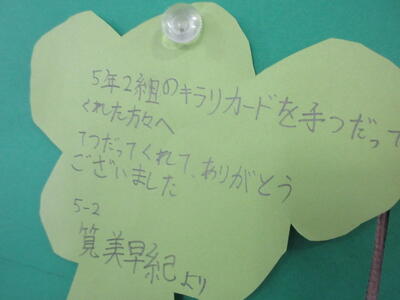 5年2組のキラリカードを手つだって
くれた方々へ
てつだってくれて、ありがとう
ございました
5-2
筧美早紀より